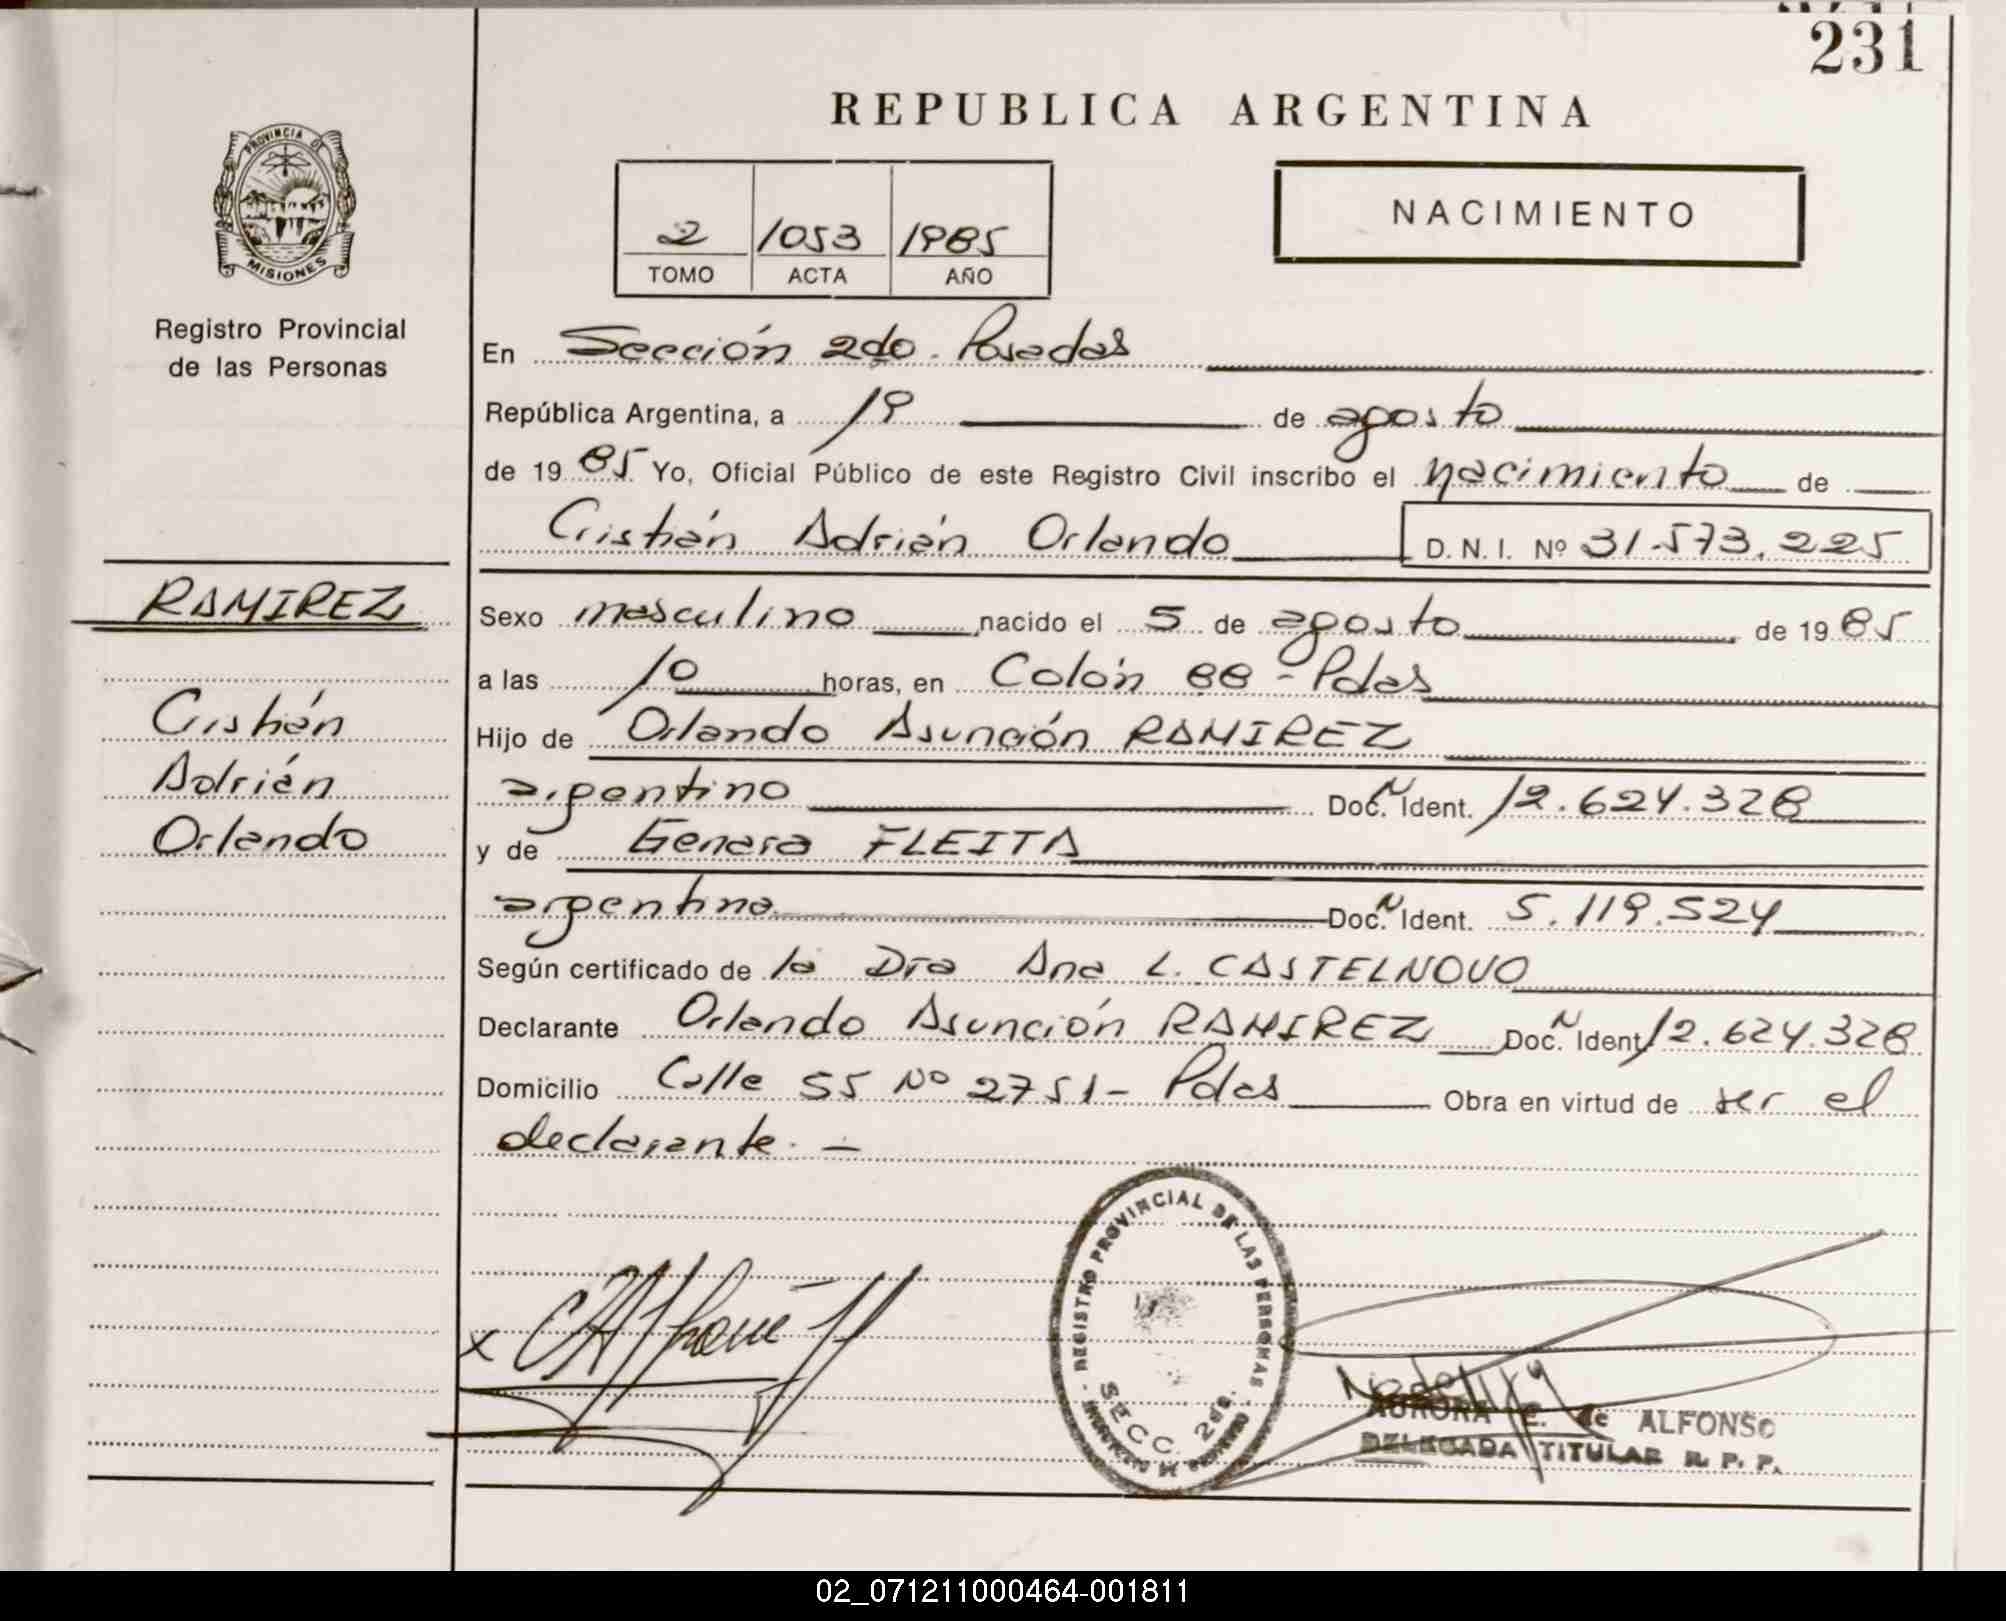 231
REPUBLICA ARGENTINA
PROVINCIA DE
MISIONES
Registro Provincial
de las Personas
NACIMIENTO
2 1053 1985
TOMO ACTA AÑO
En Sección 2do. Posadas
República Argentina, a 19 de agosto
de 1985 Yo, Oficial Público de este Registro Civil inscribo el nacimiento de
Cristián Adrián Orlando D. N. I. Nº 31.573.225
RAMIREZ
Cristián
Adrián
Orlando
Sexo masculino nacido el 5 de agosto de 1985
a las 10 horas, en Colón 88 - Pdas
Hijo de Orlando Asunción RAMIREZ
argentino Doc. N Ident. 12.624.328
y de Genara FLEITA
argentina Doc. N Ident. 5.119.524
Según certificado de la Dra Ana L. CASTELNOVO
Declarante Orlando Asunción RAMIREZ Doc. N Ident. 12.624.328
Domicilio Calle 55 Nº 2751 - Pdas Obra en virtud de ser el
declarante. -
REGISTRO PROVINCIAL DE LAS PERSONAS
SECC. 2da.
x
AURORA E. de ALFONSO
DELEGADA TITULAR R. P. P.
02_071211000464-001811